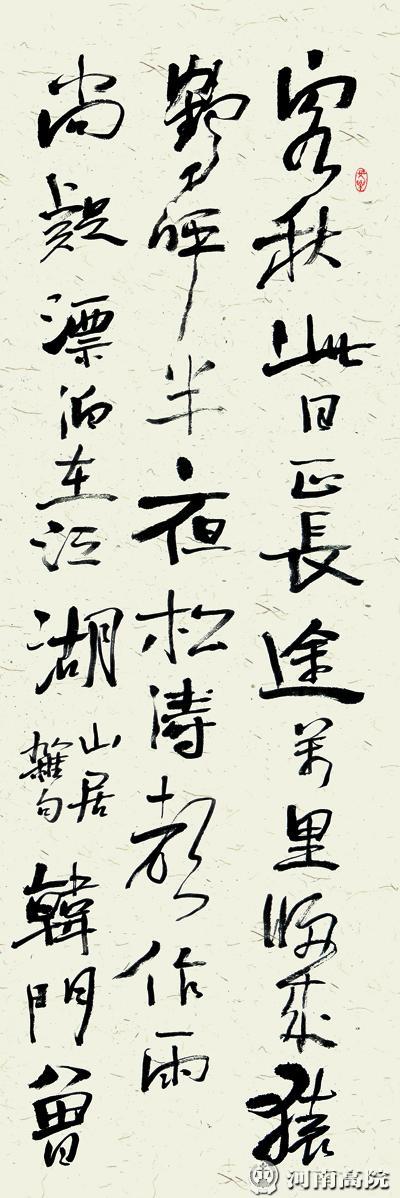 客秋此日正長途萬里歸來猿
鶴呼半夜松濤都作雨
尚疑漂泊在江湖
山居
雜句
韓門曾
河南高院